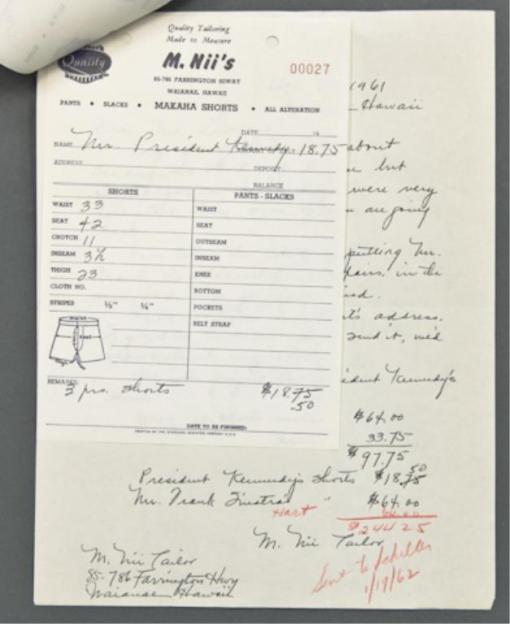 Quality Tailoring
Made to Measure
Quality
M. Nii's
00027
85-786 FARRINGTON HIWAY
WAIANAE, HAWAII
PANTS • SLACKS • MAKAHA SHORTS • ALL ALTERATION
DATE 19
NAME Mr. President Kennedy. 18.75
ADDRESS DEPOSIT
BALANCE
SHORTS
WAIST 33
SEAT 42
CROTCH 11
INSEAM 3½
THIGH 23
CLOTH NO.
STRIPES ½" ¼"
PANTS - SLACKS
WAIST
SEAT
OUTSEAM
INSEAM
KNEE
BOTTOM
POCKETS
BELT STRAP
REMARKS:
3 prs. shorts $18.75
.50
DATE TO BE FINISHED:
1961
Hawaii
about
but
were very
are going
putting Mr.
in the
address.
send it, we'd
Kennedy's
$64.00
33.75
$97.75
President Kennedy's Shorts $18.75
.50
Mr. Frank Sinatra " $64.00
Hart
$244 25
M. Nii Tailor
M. Nii Tailor
85-786 Farrington Hwy
Waianae Hawaii
Sent to Schiller
1/17/62